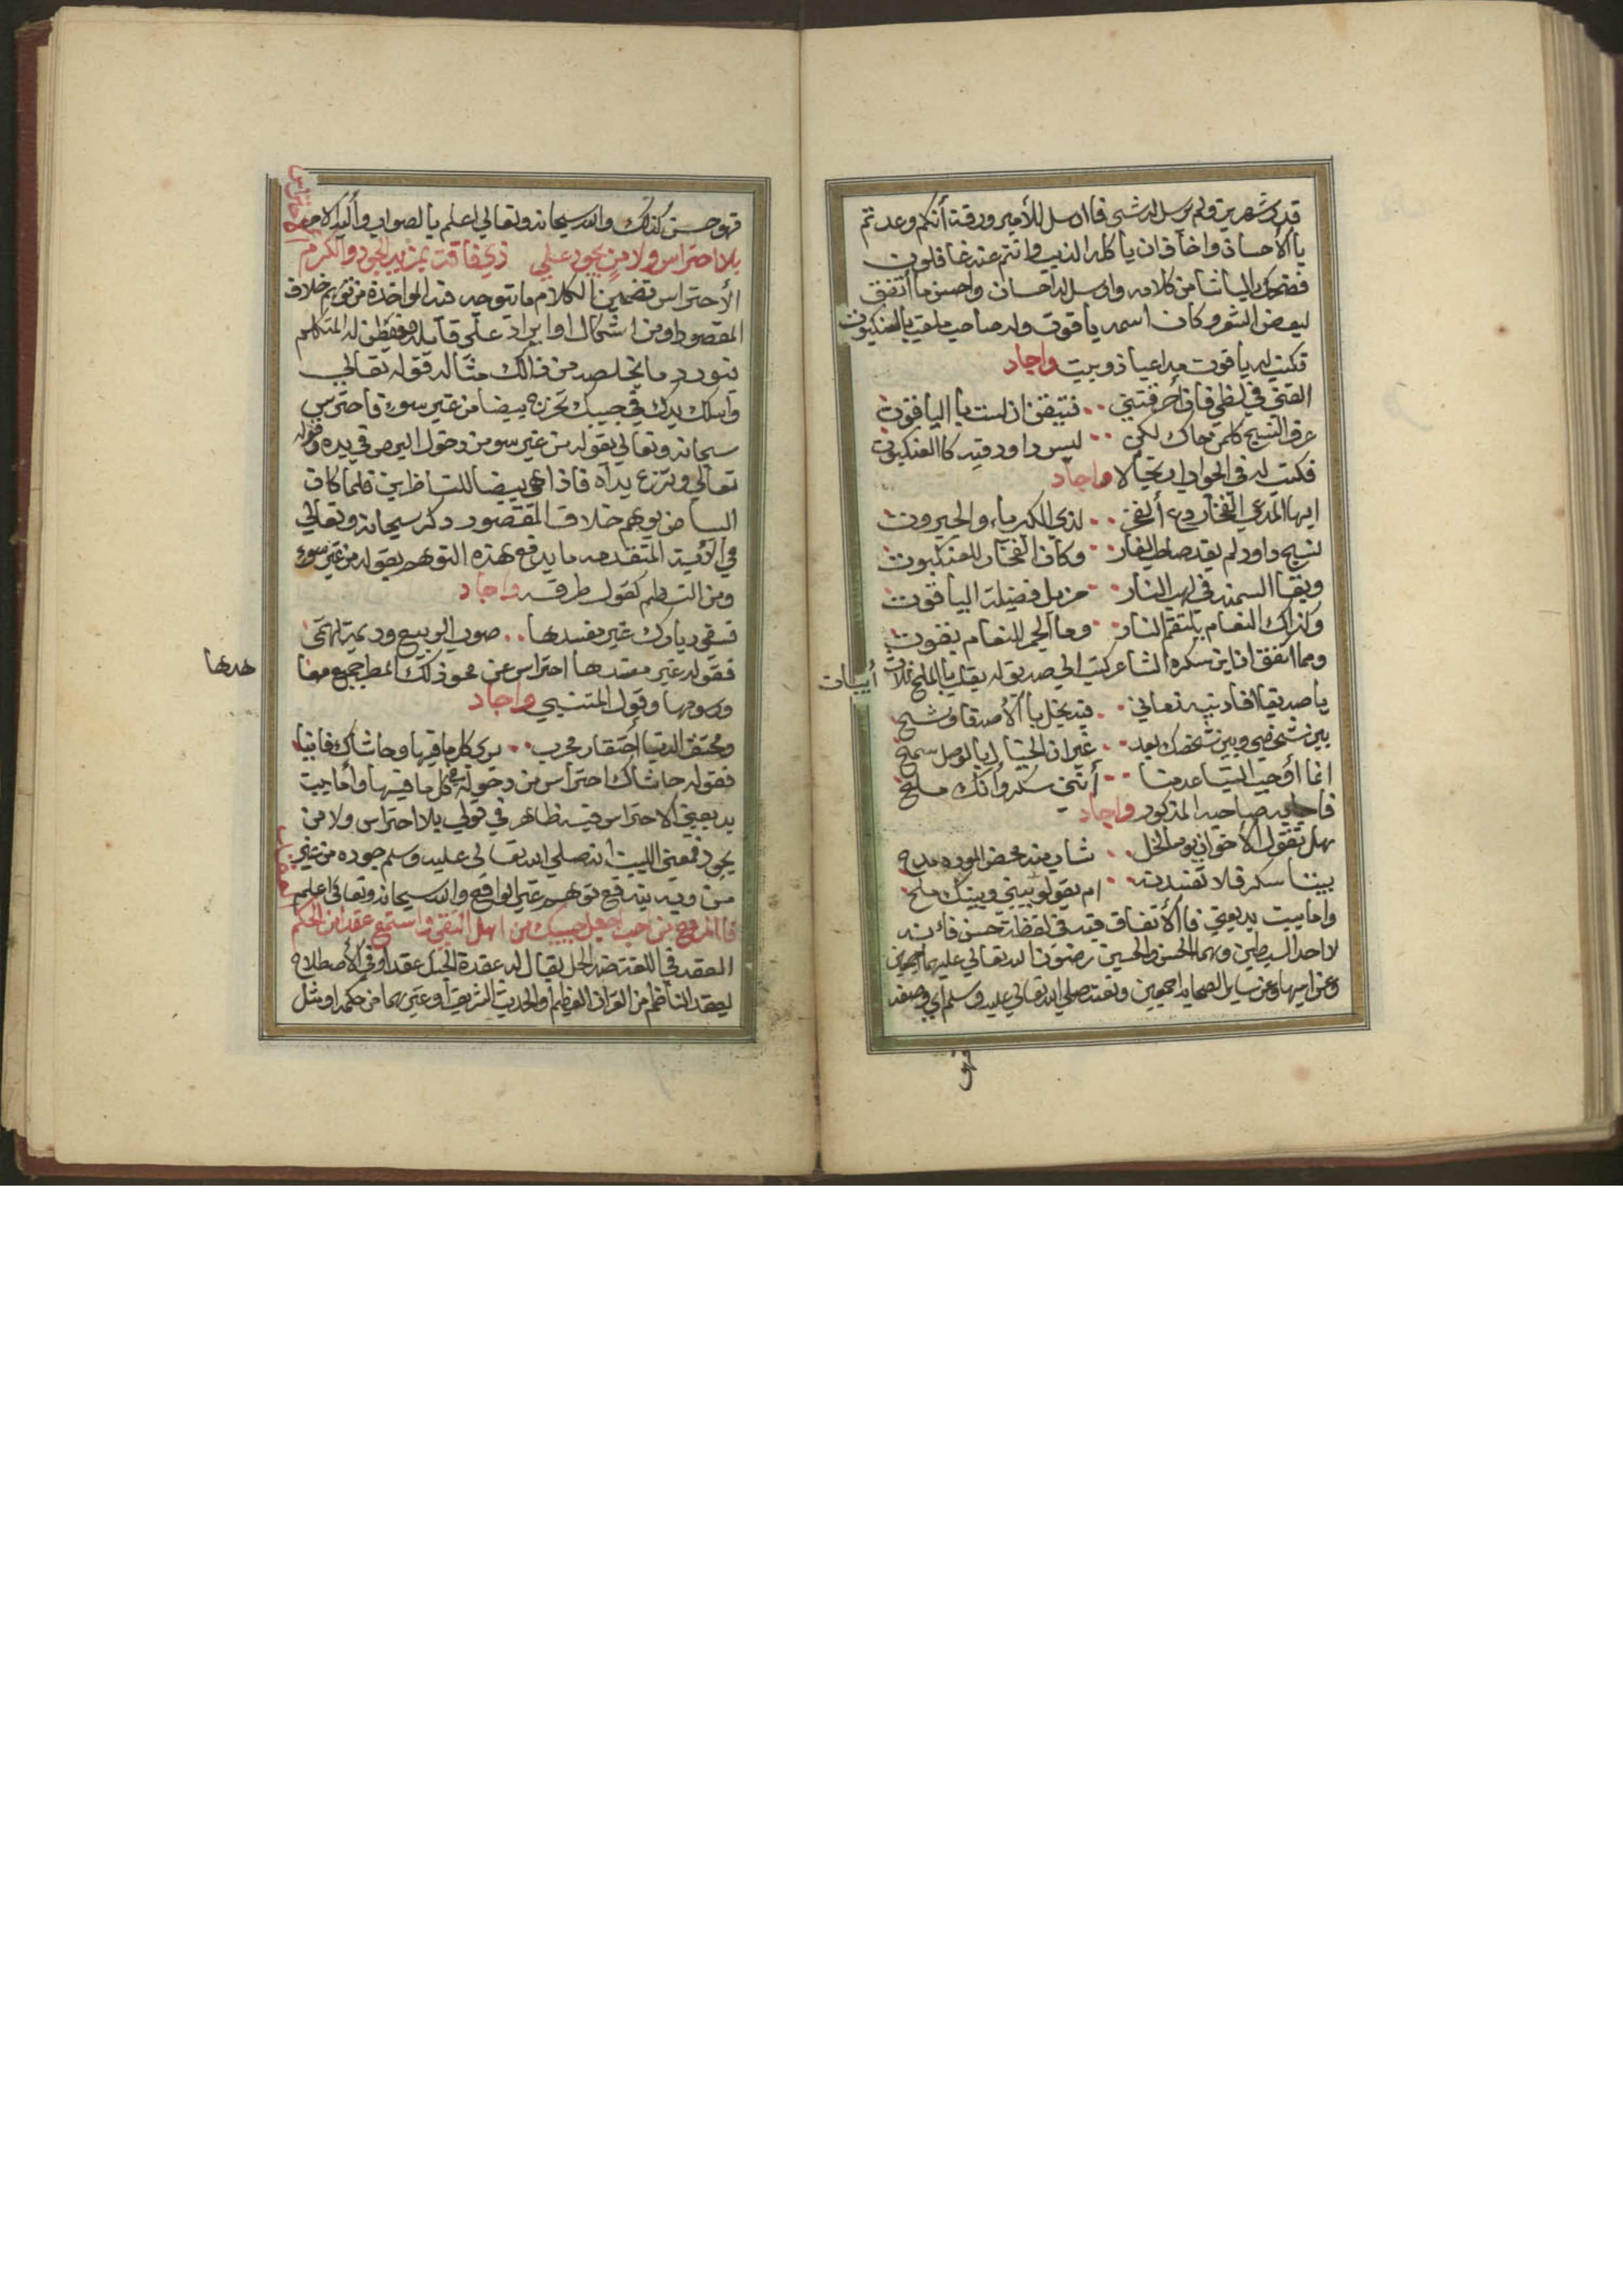 قدر شهرين ولم يرسل له شي فاارسل للأمير ورقة أنكم وعدتم
باالأحسان واخاف ان ياكله الذيب وانتم عنه غافلون
فضحك الباشا من كلامه وارسل له احسان واحسن ما أتفق
لبعض الشعر وكان اسمه ياقوت وله صاحب ملقب بالعنكبوت
فكتب له ياقوت واجاد
القني في لظي فان أحرقتني ٠٠ فتيقن ان لست باالياقوت
عرف النسج كلمن حاك لكن ٠٠ ليس داود فيه كاالعنكبوت
فكتب له في الجواب ارتجالا واجاد
ايها المدعي الفخار دع أالفخر ٠٠ لذي الكبرياء والجبروت
نسج داود لم يفد صاحب الغار ٠٠ وكان الفخار للعنكبوت
وبقاا السمند في لهب النار ٠٠ مزيل فضيلة الياقوت
وكذاك النعام يلتقم النار ٠٠ وماالجمر للنعام بقوت
ومما اتفق ان ابن سكره الشاعر كتب الي صديق له يقلب باالملح ثلاث أبيات
ياصديقاافادنيه زماني ٠٠ فيه بخل باالأصدقا وشح
بين شخصي وبين شخصك بعد ٠٠ غير ان الخيال باالوصل سمح
انما أوجب التباعد منا ٠٠ أنني سكر وأنك ملح
فاجابه صاحبه المذكور واجاد
هل تقول الأخوان يوماالخل ٠٠ شاب منه محض الموده قدح
بيننا سكر فلا تفسدنه ٠٠ ام يقولو بيني وبينك ملح
واما بيت بديعتي فاالأتفاق فيه في لفظة حسن فانه
لاحد السبطين وهما الحسن والحسين رضوان الله تعالي عليهما اجمعين
وعن ابيهما وعن سايل الصحابه اجمعين ونعته صلي الله تعالي عليه وسلم اي وصفه
فهو
الاحتراس
فهو حسن كذلك والله سبحانه وتعالي اعلم باالصواب وأليه الامر
بلا احتراس ولا من يجود علي ذي فاقة بمزيد الجود والكرم
الأحتراس تضمين الكلام ما تتوجه فيه المواخذة من توهم خلاف
المقصود اومن اشكال او ايراد علي قايله فيفطن له المتكلم
فيورد ما يخلصه من ذالك مثاله قوله تعالي
واسلك يدك في جيبك تخرج بيضا من غير سوء فاحترس
سبحانه وتعالي بقوله من غير سو من دخول البرص في يده وقوله
تعالي ونزع يده فاذا هي بيضا للناظرين فلما كان
البياض يوهم خلاف المقصود ذكر سبحانه وتعالي
في الأية المتقدمه ما يدفع هذه التوهم بقوله من غير سوء
ومن النظم كقول طرفه واجاد
فسقي ديارك غير مفسدها ٠٠ صوب الربيع وديمة تهمي
فقوله غير مفسدها احتراس عن محو ذلك المطر جميع معا هدها
ورسومها وقول المتنبي واجاد
وتحتقر الدنيا احتقار مجرب ٠٠ يري كل ما فيها وحاشاك فانيا
فقوله حاشاك احتراس من دخوله في كل ما فيها وأما بيت
بديعتي الاحتراس فيه ظاهر في قولي بلا احتراس ولا من
يجود فمعني البيت انه صلي الله تعالي عليه وسلم جوده من غير
من وبه يندفع توهم غير الواقع والله سبحانه وتعالي اعلم
فاالمرء مع من احب اجعل حبيبك من اهل التقي واستمع عقدا من الحكم
العقد في اللغة ضد الحل يقال له عقدة الحبل عقدا وفي الأصطلاح
ليعقد الناظم من القرأن العظيم أوالحديث الشريف أوغيرهما من حكمه او مثل